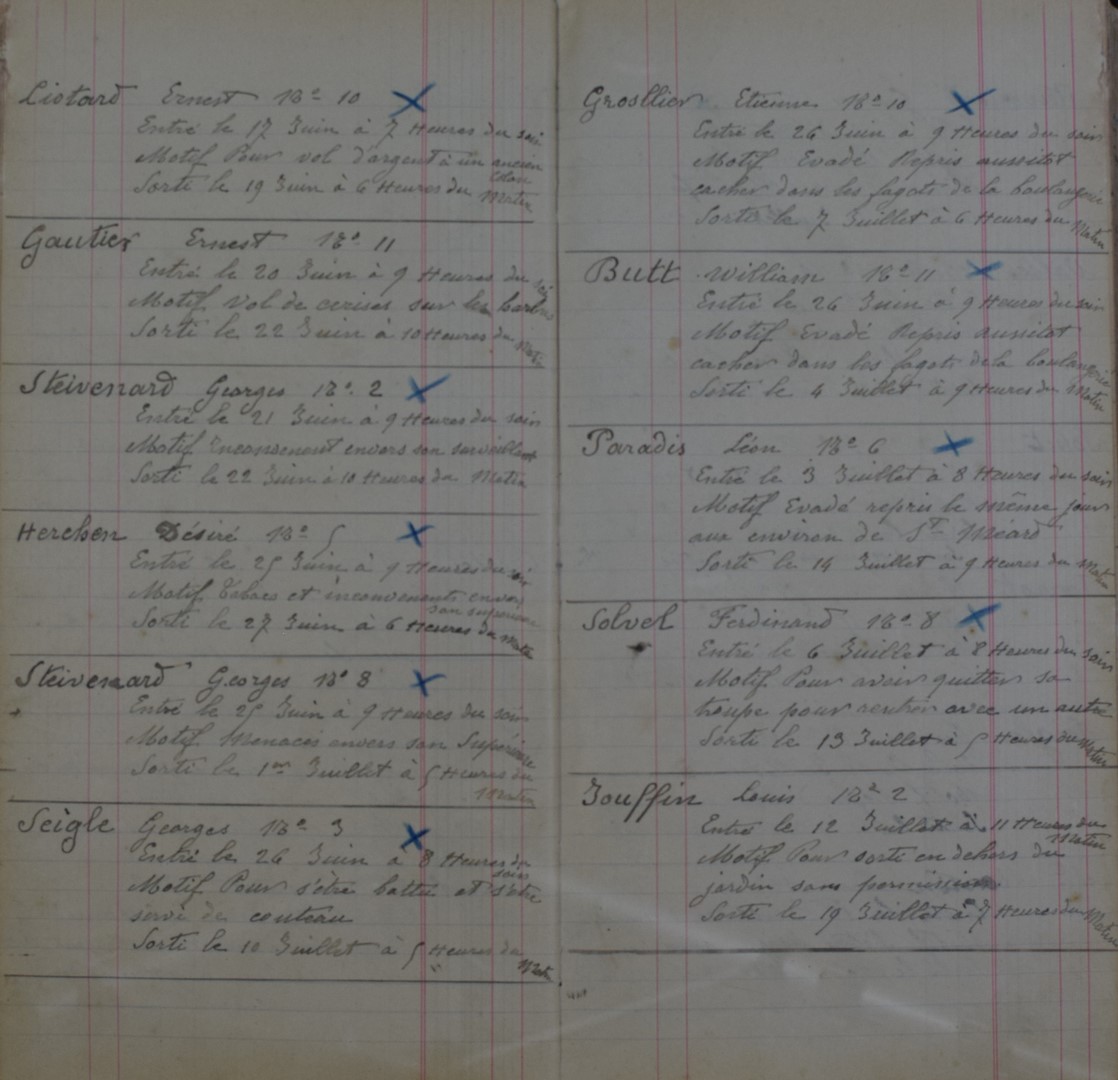 Liotard Ernest No 10
Entré le 17 Juin à 7 Heures du soir
Motif Pour vol d'argent à un ancien
colon
Sorti le 19 Juin à 6 Heures du Matin
Gautier Ernest No 11
Entré le 20 Juin à 9 Heures du soir
Motif Vol de cerises sur les
Sorti le 22 Juin à 10 Heures du Matin
Steivenard Georges No 2
Entré le 21 Juin à 9 Heures du soir
Motif Inconvenent envers son surveillant
Sorti le 22 Juin à 10 Heures du Matin
Herchen Désiré No 5
Entré le 25 Juin à 9 Heures du soir
Motif Tabacs et inconvenents envers
son supérieur
Sorti le 27 Juin à 6 Heures du Matin
Steivenard Georges No 8
Entré le 25 Juin à 9 Heures du soir
Motif Menaces envers son Supérieure
Sorti le 1er Juillet à 5 Heures du
Matin
Seigle Georges No 3
Entré le 26 Juin à 8 Heures du
soir
Motif Pour s'être battu et s'être
servi de couteau
Sorti le 10 Juillet à 5 Heures du
Matin
Grosllier Etienne No 10
Entré le 26 Juin à 9 Heures du soir
Motif Evadé Repris aussitot
cacher dans les fagots de la boulangerie
Sorti le 7 Juillet à 6 Heures du Matin
Butt William No 11
Entré le 26 Juin à 9 Heures du soir
Motif Evadé Repris aussitot
cacher dans les fagots de la boulangerie
Sorti le 4 Juillet à 9 Heures du Matin
Paradis Léon No 6
Entré le 3 Juillet à 8 Heures du soir
Motif Evadé repris le même jour
aux environ de St Méard
Sorti le 14 Juillet à 9 Heures du Matin
Solvel Ferdinand No 8
Entré le 6 Juillet à 8 Heures du soir
Motif Pour avoir quitter sa
troupe pour rentrer avec un autre
Sorti le 13 Juillet à 5 Heures du Matin
Jouffin Louis No 2
Entré le 12 Juillet à 11 Heures du
Matin
Motif Pour sorti en dehors du
jardin sans permission
Sorti le 19 Juillet à 7 Heures du Matin